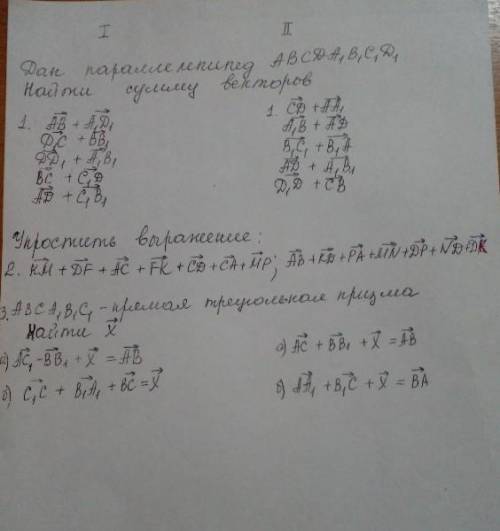 I II
Дан параллелепипед ABCDA₁B₁C₁D₁
Найти сумму векторов
1. AB→ + A₁D₁→ 1. CD→ + AA₁→
D₁C→ + BB₁→ A₁B→ + AD→
DD₁→ + A₁B₁→ B₁C₁→ + B₁A→
BC→ + C₁D→ AD→ + A₁B₁→
AD→ + C₁B₁→ D₁D→ + CB→
Упростить выражение:
2. KM→ + DF→ + AC→ + FK→ + CD→ + CA→ + MP→; AB→ + KB→ + PA→ + MN→ + DP→ + ND→ + DK→
3. ABCA₁B₁C₁ - прямая треугольная призма
Найти X→
а) AC₁→ - BB₁→ + X→ = AB→ а) AC→ + BB₁→ + X→ = AB→
б) C₁C→ + B₁A₁→ + BC→ = X→ б) AA₁→ + B₁C→ + X→ = BA→